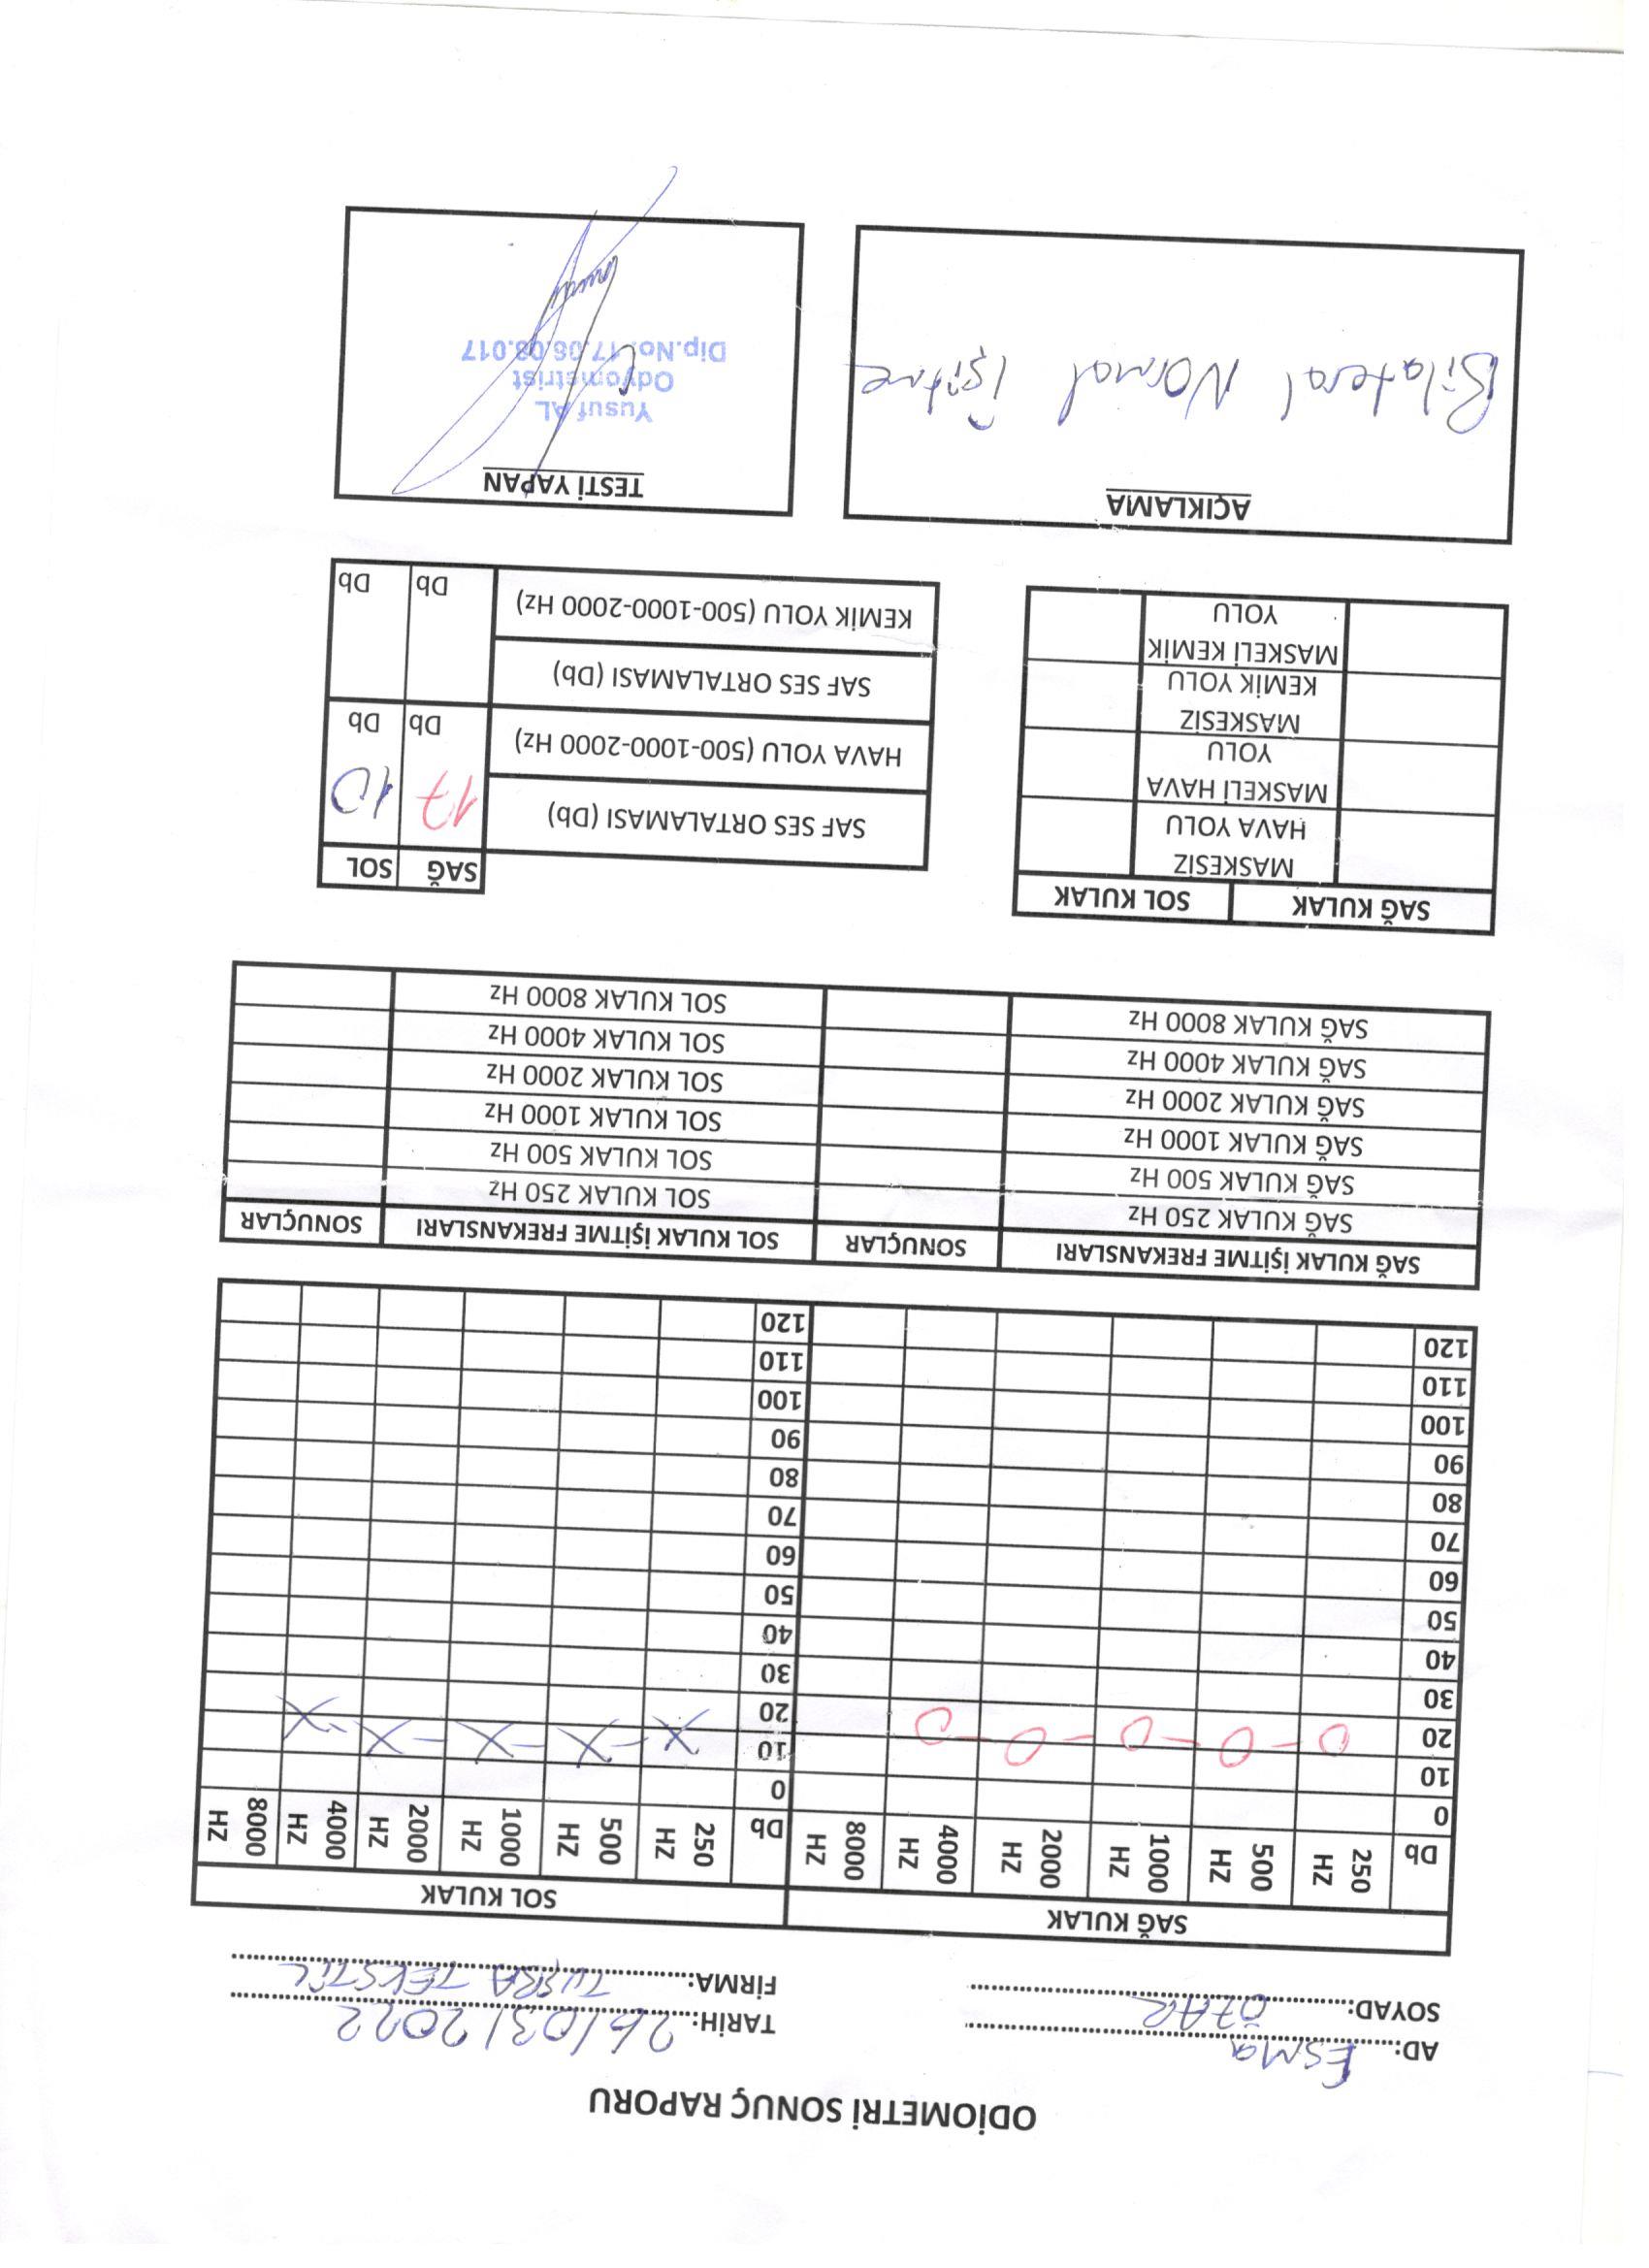 ODİOMETRİ SONUÇ RAPORU
AD:.....Esma
SOYAD:.....ÖZAR
TARİH:..26/03/2022
FİRMA:.....TUŞBA TEKSTİL
SAĞ KULAK SOL KULAK
Db 250 HZ 500 HZ 1000 HZ 2000 HZ 4000 HZ 8000 HZ Db 250 HZ 500 HZ 1000 HZ 2000 HZ 4000 HZ 8000 HZ
0 0
10 10
20 O-O-O-O-O 20 X-X-X-X--X
30 30
40 40
50 50
60 60
70 70
80 80
90 90
100 100
110 110
120 120
SAĞ KULAK İŞİTME FREKANSLARI SONUÇLAR SOL KULAK İŞİTME FREKANSLARI SONUÇLAR
SAĞ KULAK 250 Hz SOL KULAK 250 Hz
SAĞ KULAK 500 Hz SOL KULAK 500 Hz
SAĞ KULAK 1000 Hz SOL KULAK 1000 Hz
SAĞ KULAK 2000 Hz SOL KULAK 2000 Hz
SAĞ KULAK 4000 Hz SOL KULAK 4000 Hz
SAĞ KULAK 8000 Hz SOL KULAK 8000 Hz
SAĞ KULAK SOL KULAK
MASKESİZ
HAVA YOLU
MASKELİ HAVA
YOLU
MASKESİZ
KEMİK YOLU
MASKELİ KEMİK
YOLU
SAĞ SOL
SAF SES ORTALAMASI (Db) 17 10
HAVA YOLU (500-1000-2000 Hz) Db Db
SAF SES ORTALAMASI (Db)
KEMİK YOLU (500-1000-2000 Hz) Db Db
AÇIKLAMA
Bilateral Normal İşitme
TESTİ YAPAN
Yusuf AL
Odyometrist
Dip.No: 17.06.08.017